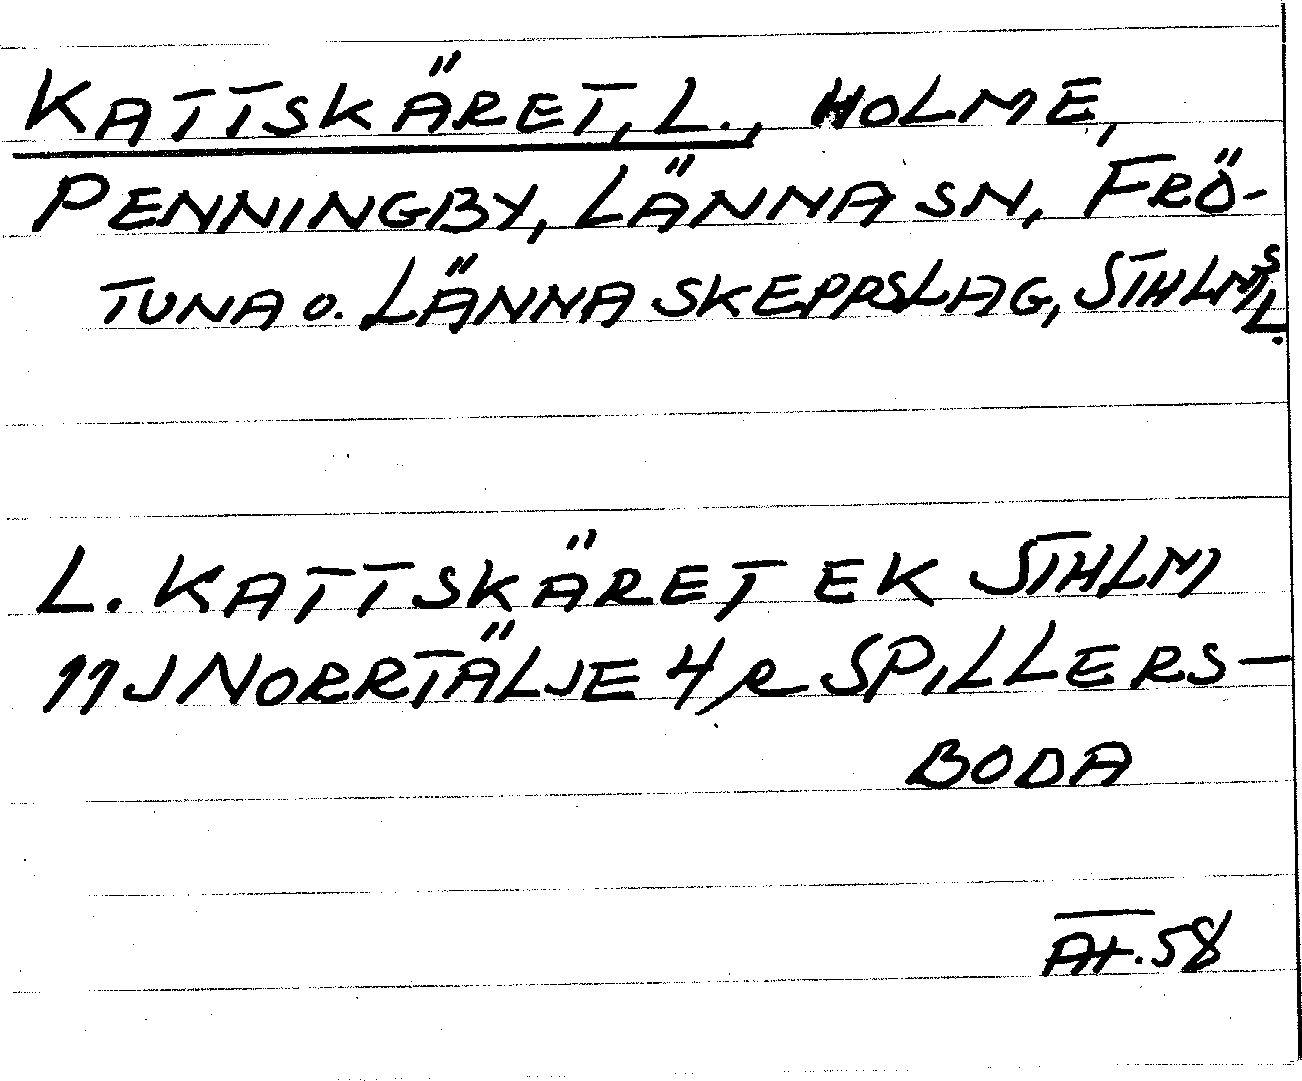 KATTSKÄRET, L., HOLME,
PENNINGBY, LÄNNA SN, FRÖ-
TUNA O. LÄNNA SKEPPSLAG, STHLMS L.
L. KATTSKÄRET EK STHLM
11J NORRTÄLJE 4/R SPILLERS-
BODA
At. 58